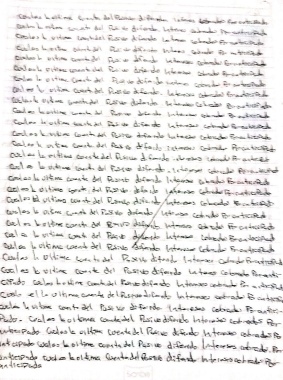 Cual es la ultima cuenta del Pasivo diferido Intereses cobrados Por anticipado
Cual es la ultima cuenta del Pasivo diferido Intereses cobrados Por anticipado
Cual es la ultima cuenta del Pasivo diferido Intereses cobrados Por anticipado
Cual es la ultima cuenta del Pasivo diferido Intereses cobrados Por anticipado
Cual es la ultima cuenta del Pasivo diferido Intereses cobrados Por anticipado
Cual es la ultima cuenta del Pasivo diferido Intereses cobrados Por anticipado
Cual es la ultima cuenta del Pasivo diferido Intereses cobrados Por anticipado
Cual es la ultima cuenta del Pasivo diferido Intereses cobrados Por anticipado
Cual es la ultima cuenta del Pasivo diferido Intereses cobrados Por anticipado
Cual es la ultima cuenta del Pasivo diferido Intereses cobrados Por anticipado
Cual es la ultima cuenta del Pasivo diferido Intereses cobrados Por anticipado
Cual es la ultima cuenta del Pasivo diferido Intereses cobrados Por anticipado
Cual es la ultima cuenta del Pasivo diferido Intereses cobrados Por anticipado
Cual es la ultima cuenta del Pasivo diferido Intereses cobrados Por anticipado
Cual es la ultima cuenta del Pasivo diferido Intereses cobrados Por anticipado
Cual es la ultima cuenta del Pasivo diferido Intereses cobrados Por anticipado
Cual es la ultima cuenta del Pasivo diferido Intereses cobrados Por anticipado
Cual es la ultima cuenta del Pasivo diferido Intereses cobrados Por anticipado
Cual es la ultima cuenta del Pasivo diferido Intereses cobrados Por anticipado
Cual es la ultima cuenta del Pasivo diferido Intereses cobrados Por anticipado
Cual es la ultima cuenta del Pasivo diferido Intereses cobrados Por anticipado
Cual es la ultima cuenta del Pasivo diferido Intereses cobrados Por anticipado
Cual es la Ultima cuenta del Pasivo diferido Intereses cobrados Por anticipado
Cual es la ultima cuenta del Pasivo diferido Intereses cobrados Por anti
cipado Cual es la ultima cuenta del Pasivo diferido Intereses cobrados Por anticipado
Cual es la Ultima cuenta del Pasivo diferido Intereses cobrados Por anticipado
Cual es la ultima cuenta del Pasivo diferido Intereses cobrados Por antici
Pado. Cual es la ultima cuenta del Pasivo diferido Intereses cobrados Por
anticipado Cual es la ultima cuenta del Pasivo diferido Intereses cobrados Por
anticipado cual es la ultima cuenta del Pasivo diferido Intereses cobrados Por
anticipado cual es la ultima cuenta del Pasivo diferido Intereses cobrados Por
anticipado